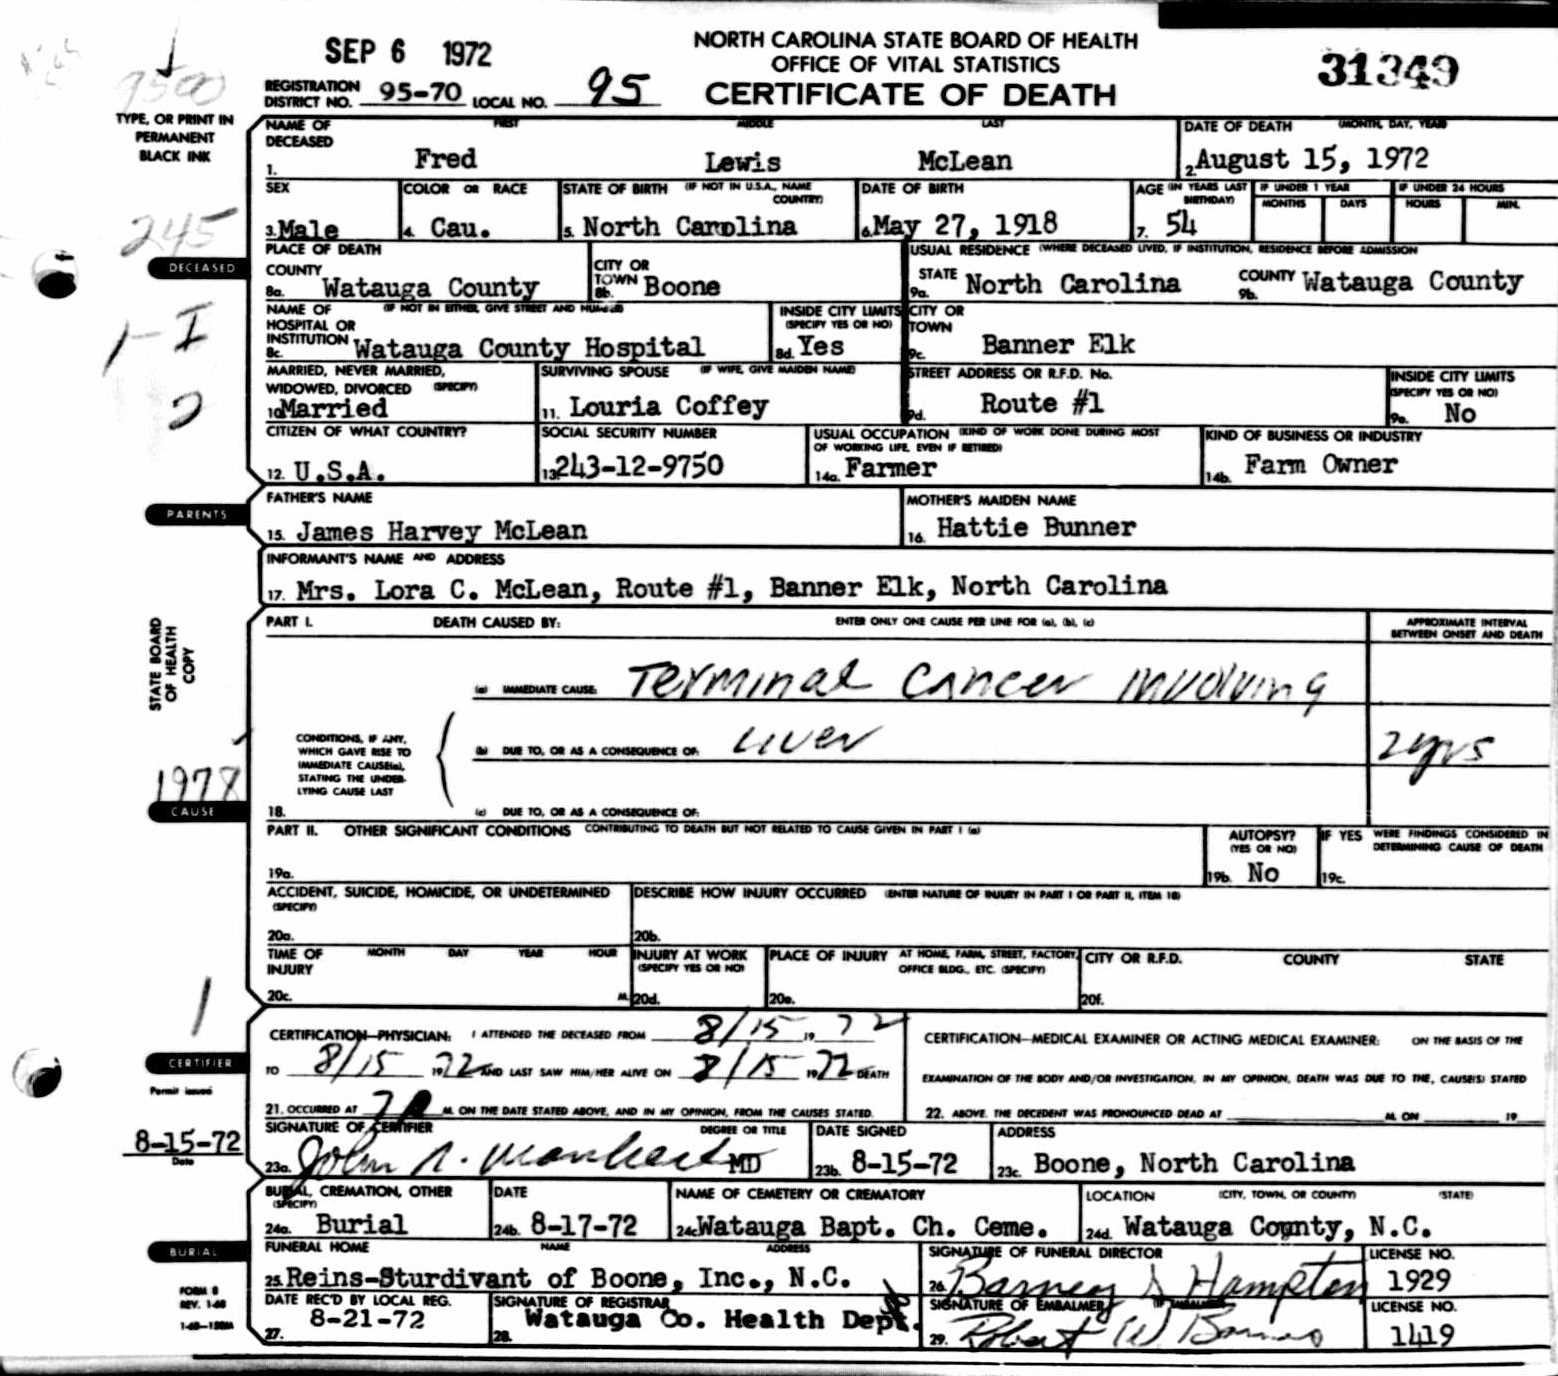 SEP 6 1972
NORTH CAROLINA STATE BOARD OF HEALTH
OFFICE OF VITAL STATISTICS
CERTIFICATE OF DEATH
31349
9500
REGISTRATION DISTRICT NO. 95-70 LOCAL NO. 95
TYPE, OR PRINT IN
PERMANENT
BLACK INK
NAME OF DECEASED FIRST MIDDLE LAST
1. Fred Lewis McLean
DATE OF DEATH (MONTH, DAY, YEAR)
2. August 15, 1972
SEX
3. Male
COLOR OR RACE
4. Cau.
STATE OF BIRTH (IF NOT IN U.S.A., NAME COUNTRY)
5. North Carolina
DATE OF BIRTH
6. May 27, 1918
AGE (IN YEARS LAST BIRTHDAY)
7. 54
IF UNDER 1 YEAR
MONTHS DAYS
IF UNDER 24 HOURS
HOURS MIN.
245
DECEASED
PLACE OF DEATH
COUNTY
8a. Watauga County
CITY OR TOWN
8b. Boone
USUAL RESIDENCE (WHERE DECEASED LIVED, IF INSTITUTION, RESIDENCE BEFORE ADMISSION
STATE
9a. North Carolina
COUNTY
9b. Watauga County
1-I
2
NAME OF HOSPITAL OR INSTITUTION (IF NOT IN EITHER, GIVE STREET AND NUMBER)
8c. Watauga County Hospital
INSIDE CITY LIMITS (SPECIFY YES OR NO)
8d. Yes
CITY OR TOWN
9c. Banner Elk
MARRIED, NEVER MARRIED, WIDOWED, DIVORCED (SPECIFY)
10. Married
SURVIVING SPOUSE (IF WIFE, GIVE MAIDEN NAME)
11. Louria Coffey
STREET ADDRESS OR R.F.D. No.
9d. Route #1
INSIDE CITY LIMITS (SPECIFY YES OR NO)
9e. No
CITIZEN OF WHAT COUNTRY?
12. U.S.A.
SOCIAL SECURITY NUMBER
13. 243-12-9750
USUAL OCCUPATION (KIND OF WORK DONE DURING MOST OF WORKING LIFE, EVEN IF RETIRED)
14a. Farmer
KIND OF BUSINESS OR INDUSTRY
14b. Farm Owner
PARENTS
FATHER'S NAME
15. James Harvey McLean
MOTHER'S MAIDEN NAME
16. Hattie Bunner
INFORMANT'S NAME AND ADDRESS
17. Mrs. Lora C. McLean, Route #1, Banner Elk, North Carolina
STATE BOARD
OF HEALTH
COPY
PART I. DEATH CAUSED BY: ENTER ONLY ONE CAUSE PER LINE FOR (a), (b), (c)
APPROXIMATE INTERVAL
BETWEEN ONSET AND DEATH
(a) IMMEDIATE CAUSE: Terminal Cancer involving
CONDITIONS, IF ANY,
WHICH GAVE RISE TO
IMMEDIATE CAUSE(a),
STATING THE UNDER-
LYING CAUSE LAST
(b) DUE TO, OR AS A CONSEQUENCE OF: Liver 2yrs
1978
CAUSE
18. (c) DUE TO, OR AS A CONSEQUENCE OF:
PART II. OTHER SIGNIFICANT CONDITIONS CONTRIBUTING TO DEATH BUT NOT RELATED TO CAUSE GIVEN IN PART I (a)
19a.
AUTOPSY? (YES OR NO)
19b. No
IF YES WERE FINDINGS CONSIDERED IN DETERMINING CAUSE OF DEATH
19c.
ACCIDENT, SUICIDE, HOMICIDE, OR UNDETERMINED (SPECIFY)
20a.
DESCRIBE HOW INJURY OCCURRED (ENTER NATURE OF INJURY IN PART I OR PART II, ITEM 18)
20b.
TIME OF INJURY MONTH DAY YEAR HOUR
20c. M.
INJURY AT WORK (SPECIFY YES OR NO)
20d.
PLACE OF INJURY AT HOME, FARM, STREET, FACTORY, OFFICE BLDG., ETC. (SPECIFY)
20e.
CITY OR R.F.D. COUNTY STATE
20f.
1
CERTIFIER
CERTIFICATION—PHYSICIAN: I ATTENDED THE DECEASED FROM 8/15 1972
TO 8/15 1972 AND LAST SAW HIM/HER ALIVE ON 8/15 1972 DEATH
21. OCCURRED AT 7P M. ON THE DATE STATED ABOVE, AND IN MY OPINION, FROM THE CAUSES STATED.
CERTIFICATION—MEDICAL EXAMINER OR ACTING MEDICAL EXAMINER: ON THE BASIS OF THE
EXAMINATION OF THE BODY AND/OR INVESTIGATION, IN MY OPINION, DEATH WAS DUE TO THE, CAUSE(S) STATED
22. ABOVE. THE DECEDENT WAS PRONOUNCED DEAD AT M. ON 19
Permit issued
8-15-72
Date
SIGNATURE OF CERTIFIER DEGREE OR TITLE
23a. John MD
DATE SIGNED
23b. 8-15-72
ADDRESS
23c. Boone, North Carolina
BURIAL, CREMATION, OTHER (SPECIFY)
24a. Burial
DATE
24b. 8-17-72
NAME OF CEMETERY OR CREMATORY
24c. Watauga Bapt. Ch. Ceme.
LOCATION (CITY, TOWN, OR COUNTY) (STATE)
24d. Watauga County, N.C.
BURIAL
FUNERAL HOME NAME ADDRESS
25. Reins-Sturdivant of Boone, Inc., N.C.
SIGNATURE OF FUNERAL DIRECTOR
26. Barney D Hampton
LICENSE NO.
1929
FORM 8
REV. 1-68
DATE REC'D BY LOCAL REG.
27. 8-21-72
SIGNATURE OF REGISTRAR
28. Watauga Co. Health Dept.
SIGNATURE OF EMBALMER
29. Robert W Barnes
LICENSE NO.
1419